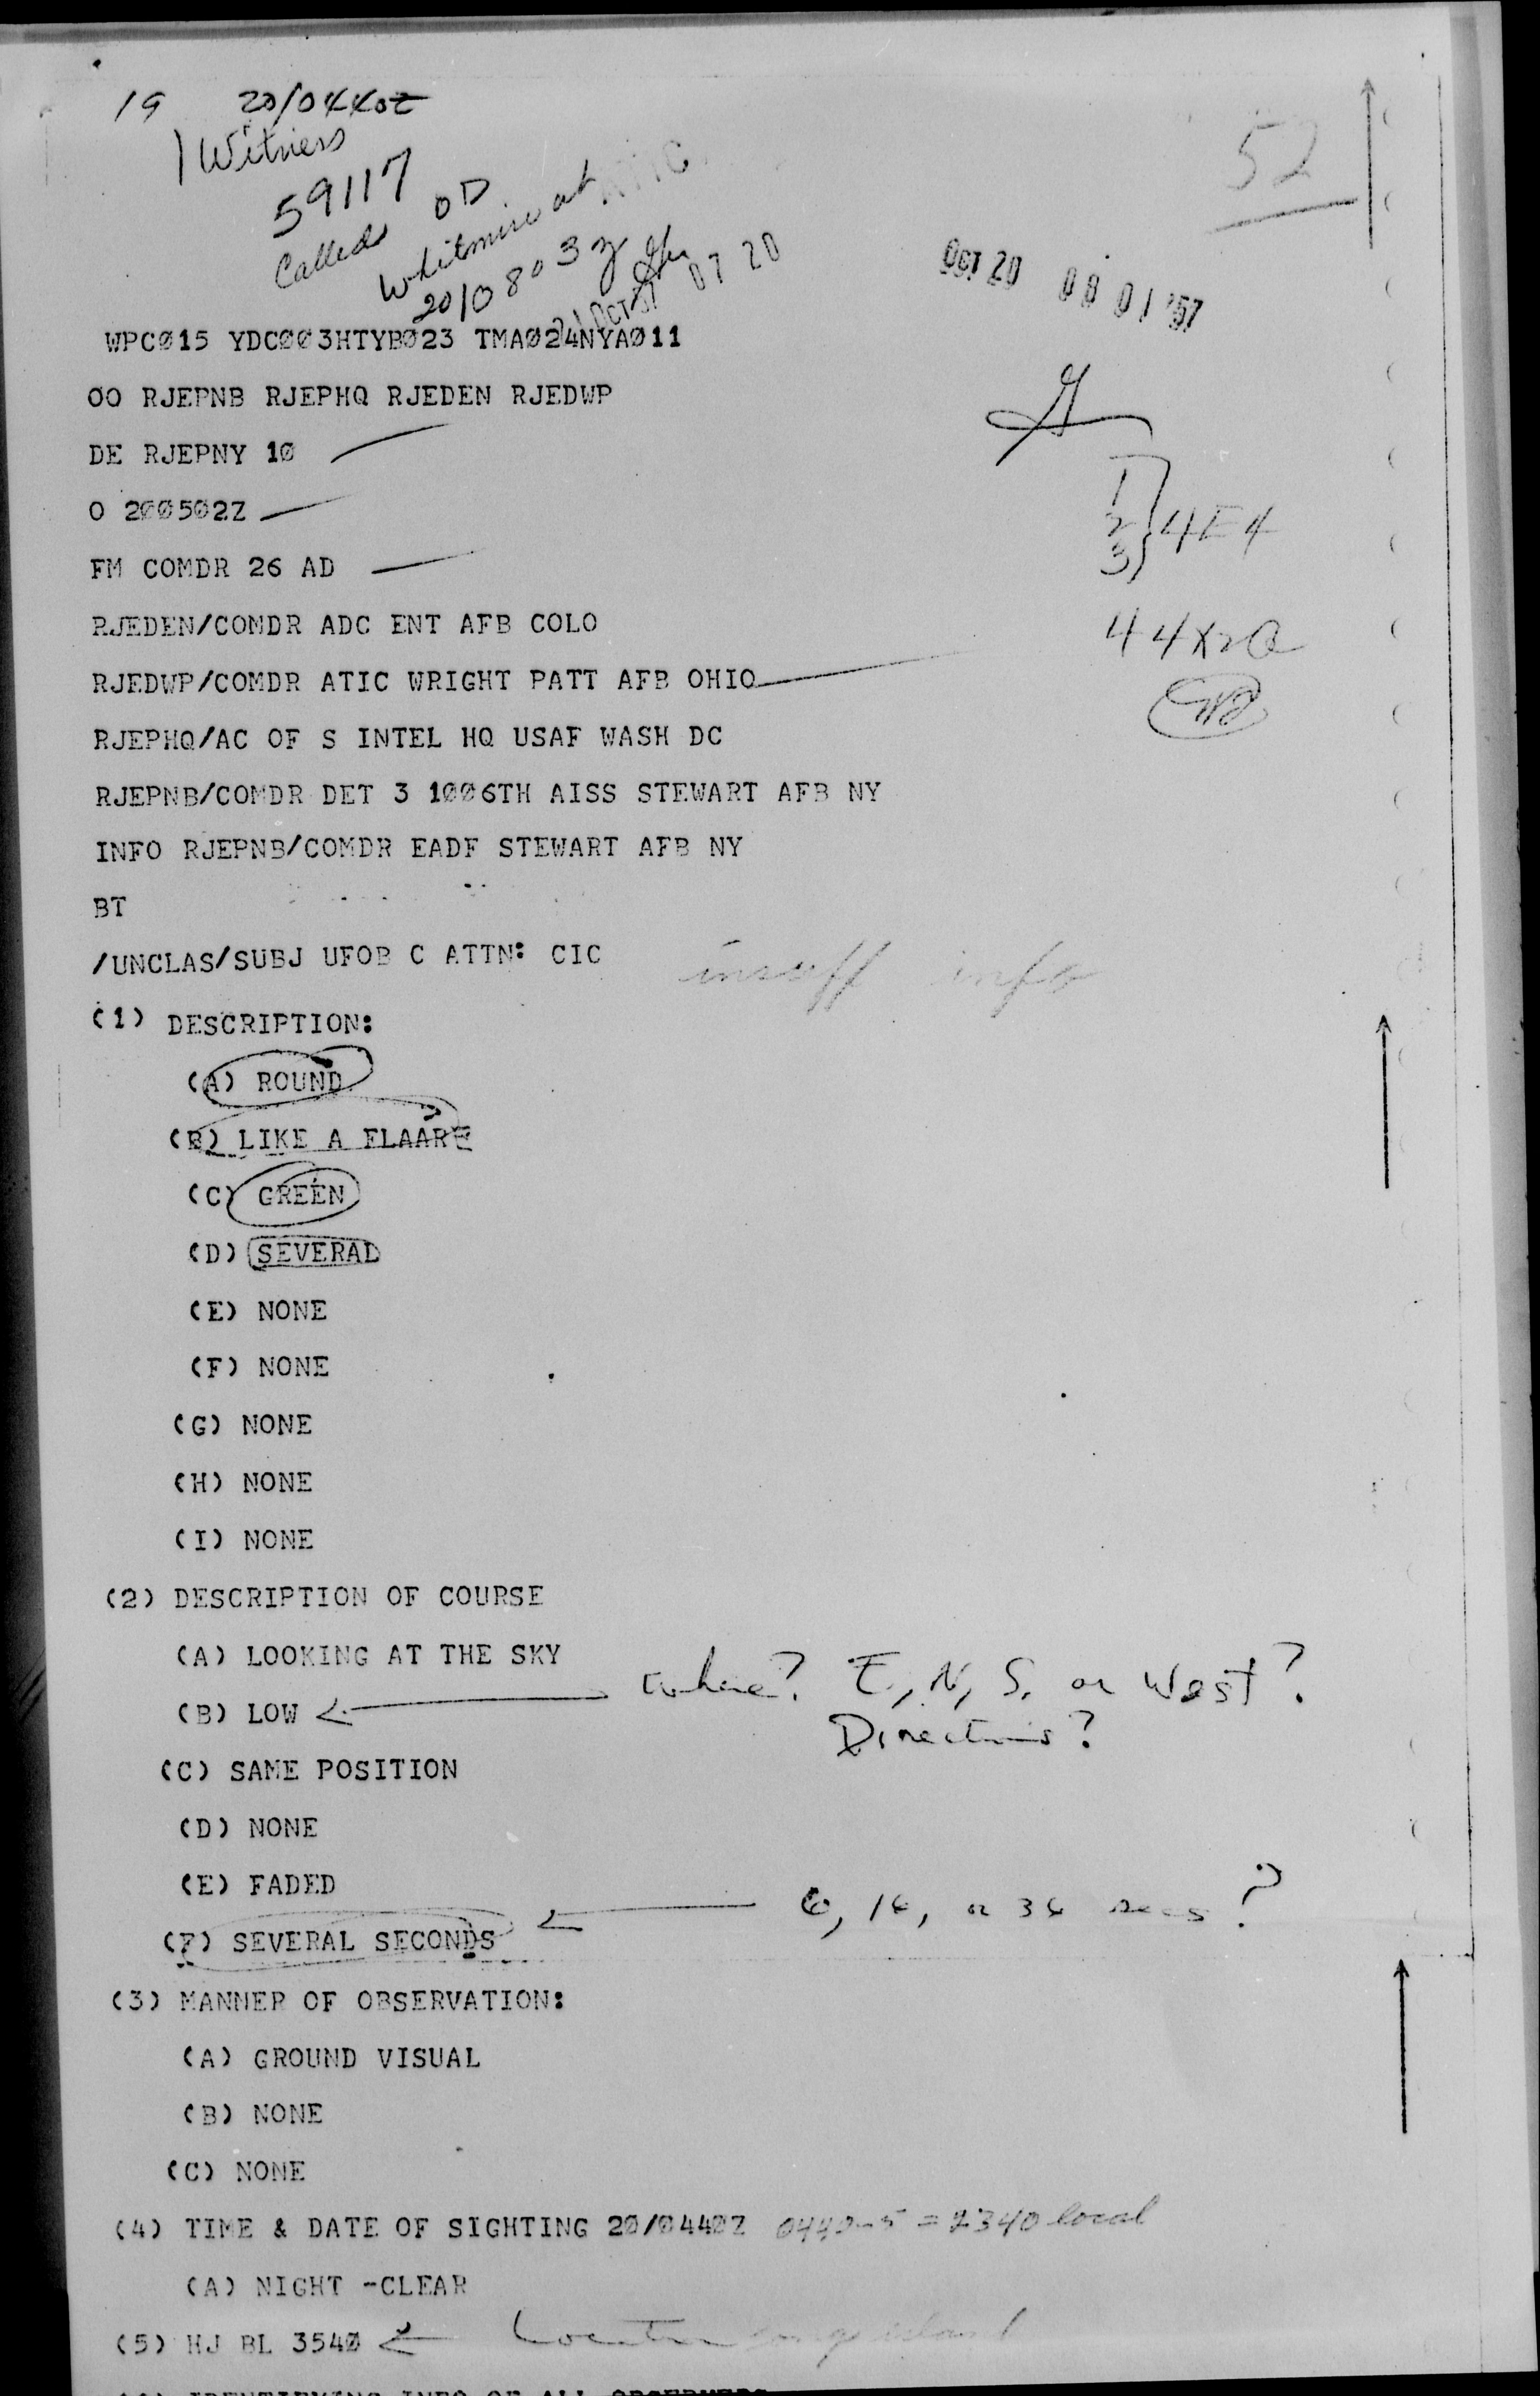 19 20/0440Z
1 Witness
59117
Called OD
Whitmire at ATIC
20/0803Z
21 OCT 57 07 20
52
OCT 20 08 01 '57
WPCØ15 YDCØØ3HTYBØ23 TMAØ24NYAØ11
OO RJEPNB RJEPHQ RJEDEN RJEDWP
DE RJEPNY 1Ø
O 2ØØ5Ø2Z
1
2 4E4
3
FM COMDR 26 AD
RJEDEN/COMDR ADC ENT AFB COLO
44X2a
RJEDWP/COMDR ATIC WRIGHT PATT AFB OHIO
RJEPHQ/AC OF S INTEL HQ USAF WASH DC
RJEPNB/COMDR DET 3 1ØØ6TH AISS STEWART AFB NY
INFO RJEPNB/COMDR EADF STEWART AFB NY
BT
/UNCLAS/SUBJ UFOB C ATTN: CIC insuff info
(1) DESCRIPTION:
(A) ROUND
(B) LIKE A FLAARE
(C) GREEN
(D) SEVERAL
(E) NONE
(F) NONE
(G) NONE
(H) NONE
(I) NONE
(2) DESCRIPTION OF COURSE
(A) LOOKING AT THE SKY
(B) LOW where? E, N, S, or West?
Directions?
(C) SAME POSITION
(D) NONE
(E) FADED
(F) SEVERAL SECONDS 6, 16, or 36 secs?
(3) MANNER OF OBSERVATION:
(A) GROUND VISUAL
(B) NONE
(C) NONE
(4) TIME & DATE OF SIGHTING 2Ø/Ø44ØZ 0440-5 = 2340 local
(A) NIGHT -CLEAR
(5) HJ BL 354Ø Location Long Island